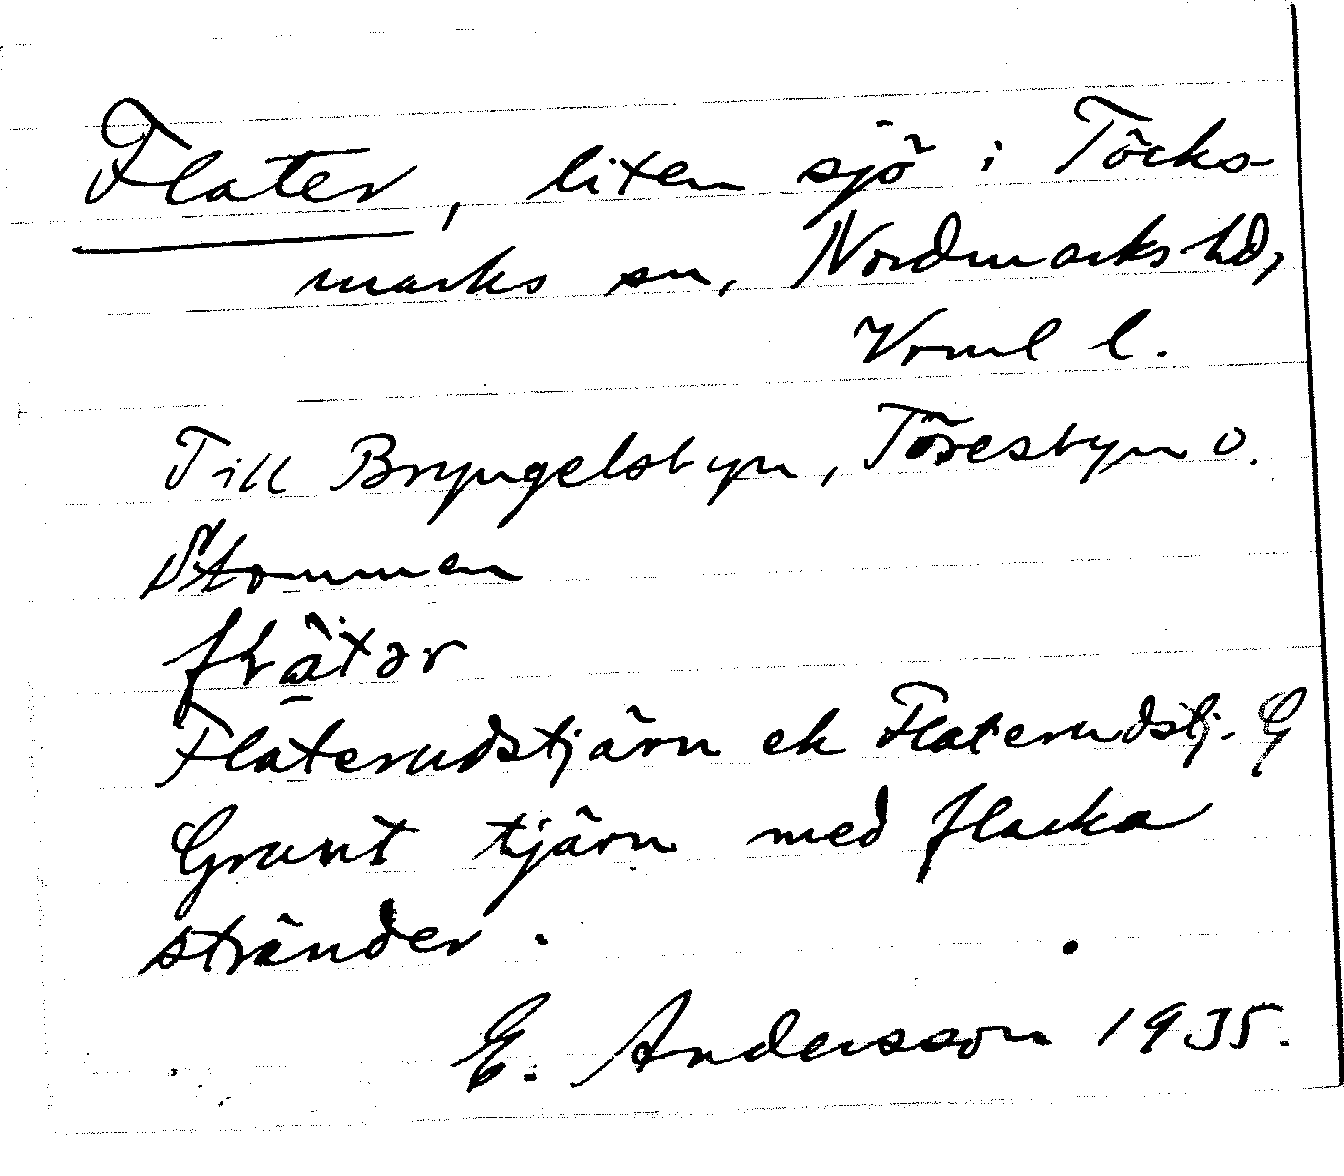 Flater, liten sjö i Töcks-
marks sn, Nordmarks hd,
Vrml l.
Till Bryngelsbyn, Töresbyn o.
Stommen
Flaterudstjärn ek Flaterudstj. G
Grunt tjärn med flacka
stränder.
E. Andersson 1935.